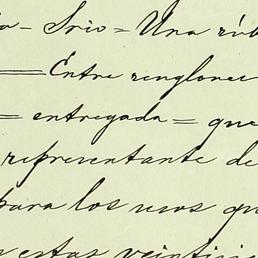 - Srio = Una rúb
= Entre renglones
= entregada = que
representante de
para los usos qu
estas veintici